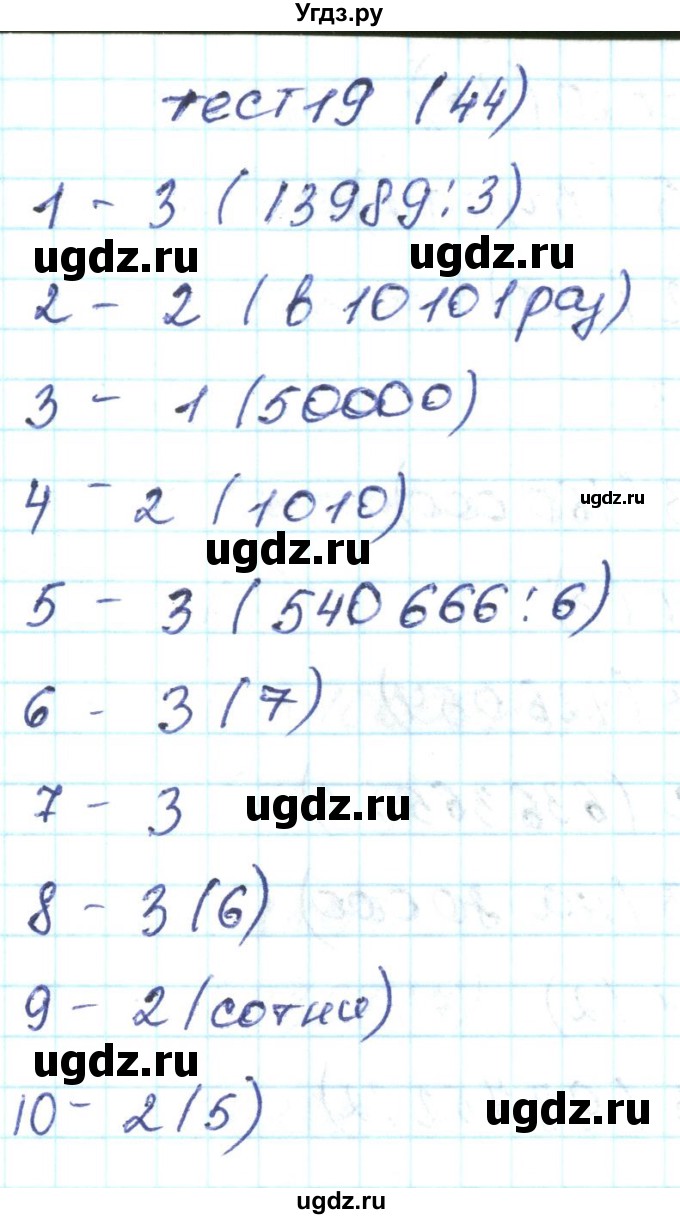 Угдз.ру
тест 19 (44)
1 - 3 (13989:3)
ugdz.ru ugdz.ru
2 - 2 (в 10101 раз)
3 - 1 (50000)
4 - 2 (1010)
ugdz.ru
ugdz.ru
5 - 3 (540 666:6)
6 - 3 (7)
7 - 3
ugdz.ru
8 - 3 (6)
9 - 2 (сотни)
ugdz.ru
10 - 2 (5)
ugdz.ru
ugdz.ru